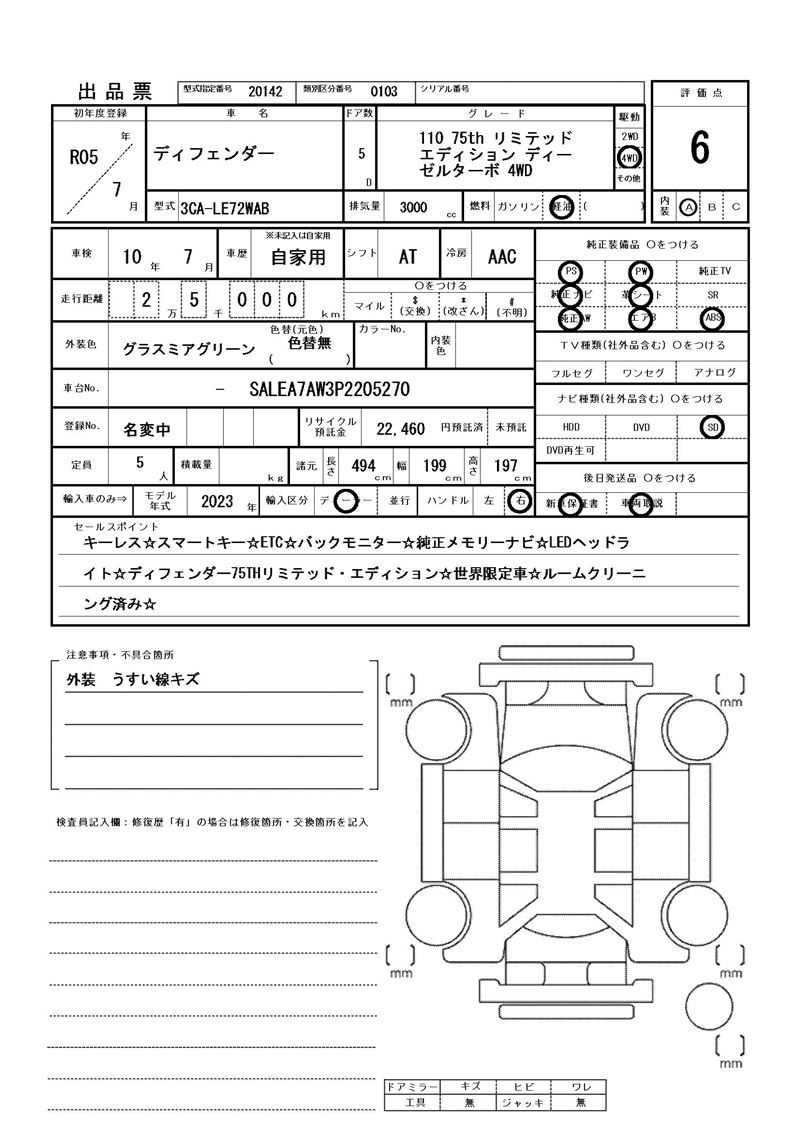 出品票 型式指定番号 20142 類別区分番号 0103 シリアル番号
評価点
6
内装 A B C
初年度登録 車名 ドア数 グレード 駆動
R05 年 7 月
ディフェンダー
5 D
110 75th リミテッド
エディション ディー
ゼルターボ 4WD
2WD
4WD
その他
型式 3CA-LE72WAB 排気量 3000 cc 燃料 ガソリン 軽油 ( )
車検 10 年 7 月 車歴 ※未記入は自家用 自家用 シフト AT 冷房 AAC
走行距離 2 万 5 千 0 0 0 km
○をつける
マイル $ (交換) * (改ざん) # (不明)
外装色 グラスミアグリーン 色替(元色) 色替無 ( ) カラーNo. 内装色
車台No. － SALEA7AW3P2205270
登録No. 名変中 リサイクル預託金 22,460 円預託済 未預託
定員 5 人 積載量 kg 諸元 長さ 494 cm 幅 199 cm 高さ 197 cm
輸入車のみ⇒ モデル年式 2023 年 輸入区分 ディーラー 並行 ハンドル 左 右
純正装備品 ○をつける
PS PW 純正TV
純正ナビ 革シート SR
純正AW エアB ABS
TV種類(社外品含む) ○をつける
フルセグ ワンセグ アナログ
ナビ種類(社外品含む) ○をつける
HDD DVD SD
DVD再生可
後日発送品 ○をつける
新車保証書 車両取説
セールスポイント
キーレス☆スマートキー☆ETC☆バックモニター☆純正メモリーナビ☆LEDヘッドラ
イト☆ディフェンダー75THリミテッド・エディション☆世界限定車☆ルームクリーニ
ング済み☆
注意事項・不具合箇所
外装 うすい線キズ
検査員記入欄：修復歴「有」の場合は修復箇所・交換箇所を記入
mm
mm
mm
mm
mm
ドアミラー キズ ヒビ ワレ
工具 無 ジャッキ 無